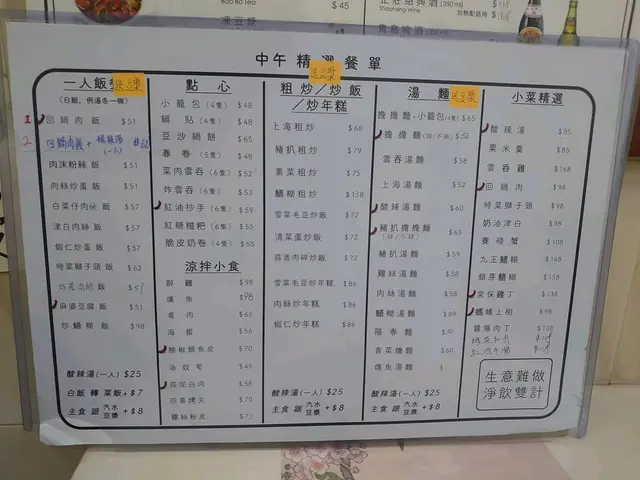 凍豆漿
$45
Shaoxing Wine
青島啤酒
中午精選餐單
一人飯
送豆漿
(白飯, 例湯各一碗)
1 回鍋肉飯 $51
2
肉沫粉絲飯 $51
肉絲炒蛋飯 $51
白菜仔肉絲飯 $57
津白肉絲飯 $57
蝦仁炒蛋飯 $57
時菜獅子頭飯 $62
麻婆豆腐飯 $51
炒鱔糊飯 $98
酸辣湯(一人) $25
白飯 轉 菜飯+$7
主食 跟 汽水 豆漿 +$8
點心
小籠包(4隻) $48
鍋貼(4隻) $48
豆沙鍋餅 $65
春卷(5隻) $48
菜肉雲吞(6隻) $52
炸雲吞(6隻) $53
紅油抄手(6隻) $59
紅糖糍粑(6隻) $55
脆皮奶卷(4隻) $55
涼拌小食
醉雞 $98
燻魚
肴肉 $65
海蜇 $56
$70
油炆筍 $45
蒜泥白肉 $58
四喜烤夫 $70
雞絲粉皮 $73
粗炒/炒飯
送豆漿
/炒年糕
上海粗炒 $68
豬扒炒飯 $79
素菜粗炒 $75
鱔糊粗炒 $118
雪菜毛豆炒飯 $72
清菜蛋炒飯 $72
蒜香肉碎炒飯 $72
雪菜毛豆炒年糕 $86
肉絲炒年糕 $86
蝦仁炒年糕 $86
酸辣湯(一人) $25
主食 跟 汽水 豆漿 +$8
湯麵
送豆漿
擔擔麵+小籠包(4隻) $65
擔擔麵(辣/不辣) $52
雲吞湯麵 $58
上海湯麵 $52
酸辣湯麵 $60
豬扒擔擔麵 $65
(辣/不辣)
豬扒湯麵 $59
雞絲湯麵 $58
肉絲湯麵 $58
鱔糊湯麵 $89
陽春麵
青菜燴麵 $60
燻魚湯麵 $
酸辣湯(一人) $25
主食 跟 汽水 豆漿 +$8
小菜精選
酸辣湯 $85
粟米羹 $85
雲吞雞 $168
回鍋肉 $98
時菜獅子頭 $98
奶油津白 $98
賽螃蟹 $108
九王鱔糊 $168
銀芽鱔糊 $158
宮保雞丁 $138
螞蟻上樹 $98
醬爆肉丁 $138
生意難做
淨飲雙計